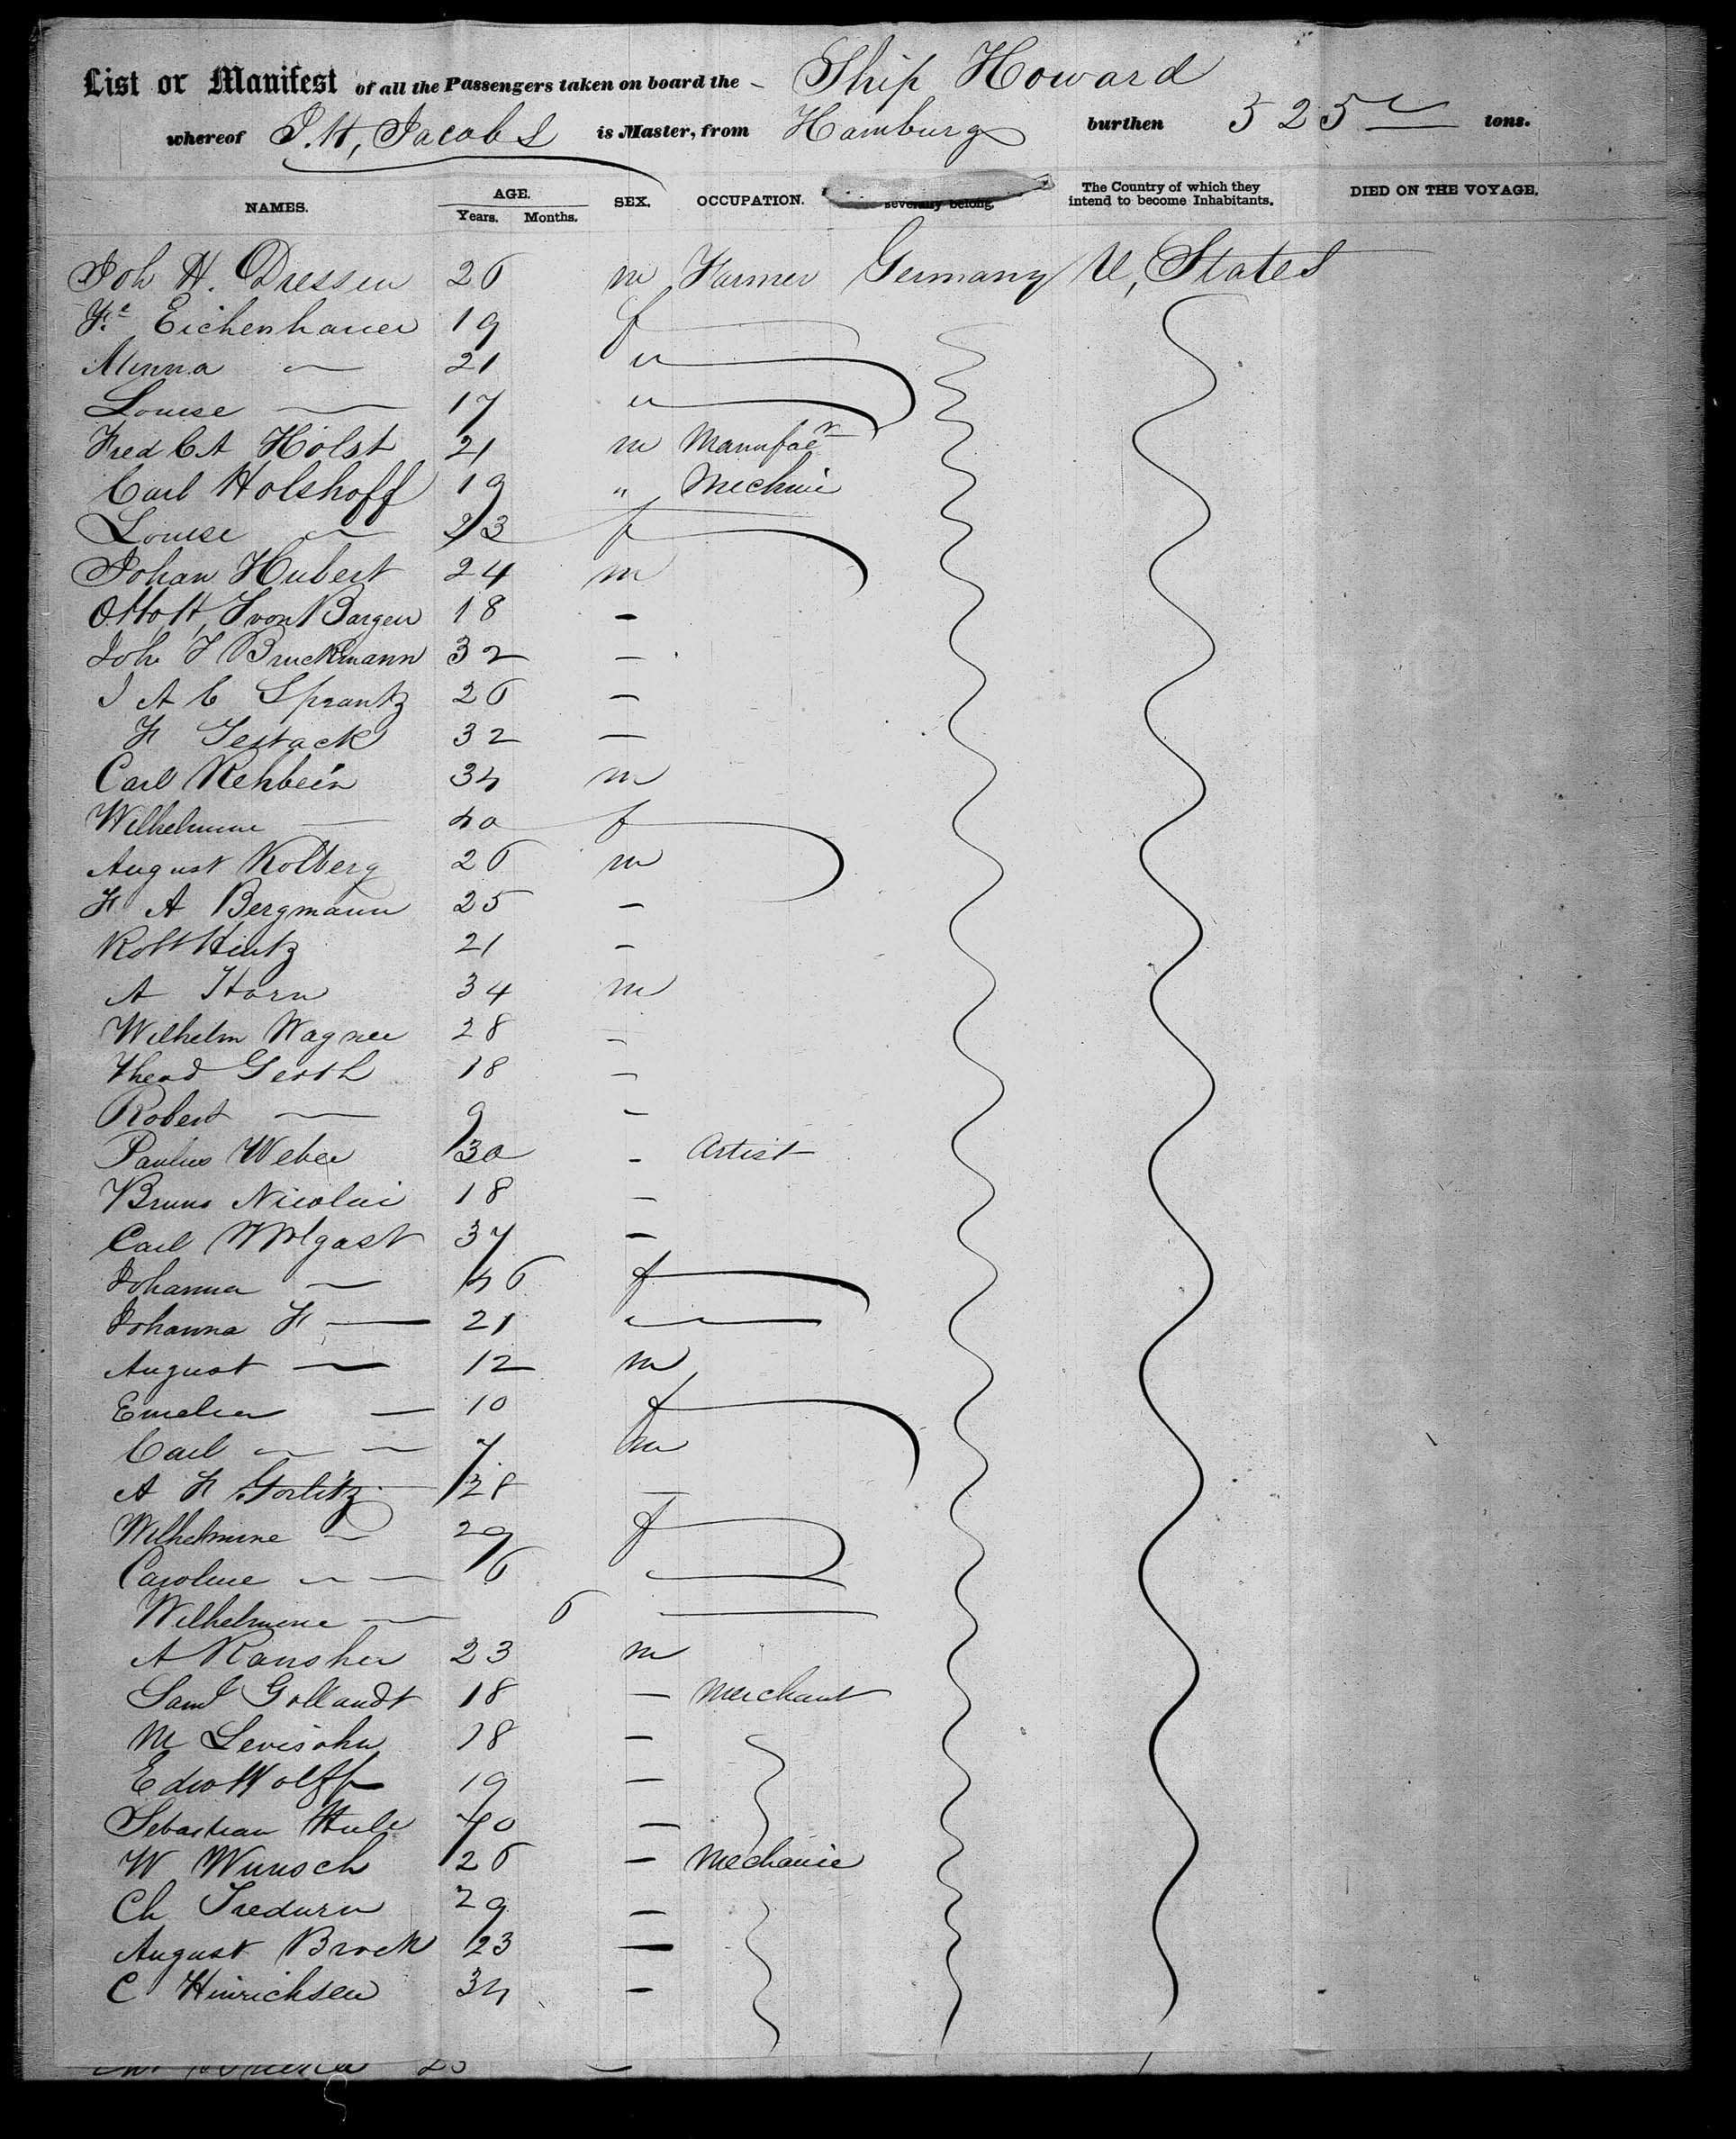 List or Manifest of all the Passengers taken on board the - Ship Howard
whereof J. H, Jacobs is Master, from Hamburg burthen 525 tons.
NAMES. AGE. Years. Months. SEX. OCCUPATION. severally belong. The Country of which they intend to become Inhabitants. DIED ON THE VOYAGE.
Joh H. Dressen 26 m Farmer Germany U, States
Fr. Eichenhauer 19 f
Minna — 21 "
Louise — 17 "
Fred C A Holst 21 m Manufacr
Carl Holshoff 19 " Mechnic
Louise — 23 f
Johan Hubert 24 m
Otto H, J von Bargen 18 -
Joh J Bruckmann 32 -
J A C Sprantz 26 -
F Gestack 32 -
Carl Rehbein 34 m
Wilhelmine — 40 f
August Kolberg 26 m
F A Bergmann 25 -
Robt Hintz 21 -
A Horn 34 m
Wilhelm Wagner 28 -
Theod Gerth 18 -
Robert — 9 -
Paulus Weber 30 - Artist
Bruno Nicolai 18 -
Carl Wolgast 37 -
Johanna — 46 f
Johanna F — 21 "
August — 12 m
Emelia — 10 f
Carl — — 7 m
A F Gorlitz 38 —
Wilhelmine — 29 f
Caroline — — 6 "
Wilhelmine — 6 —
A Ransher 23 m
Saml Gollandt 18 — Merchant
M Levisohn 18 —
Edw Wolff 19 —
Sebastian 40 —
W Wunsch 26 — Mechanic
Ch 29 —
August Brock 23 —
C Hinrichsen 34 -